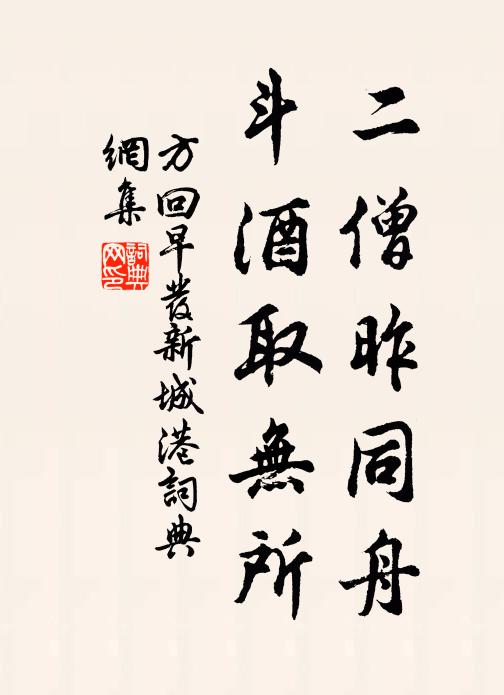 二僧昨同舟
斗酒取無所
方回早發新城港詞典
網集
詞典
网印